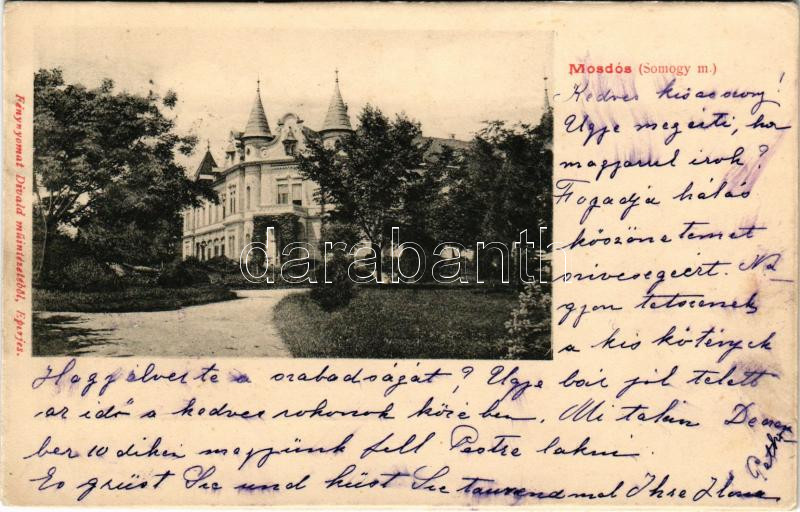 Mosdós (Somogy m.)
Kedves kisasszony!
Ugye megérti, ha
magyarul irok?
Fogadja hálás
köszönetemet
szivesegeért. Na-
gyon tetszenek
a kis kötények
Hogy élvezte a szabadságát? Ugye bár jól telett
az idő a kedves rokonok közében. Mi talán Decem
ber 10 dikén megyünk fell Pestre lakni.
Es grüst Sie und küst Sie tausend mal Ihre Ilona
Fénynyomat Divald műintézetéből, Eperjes.
darabanth.com